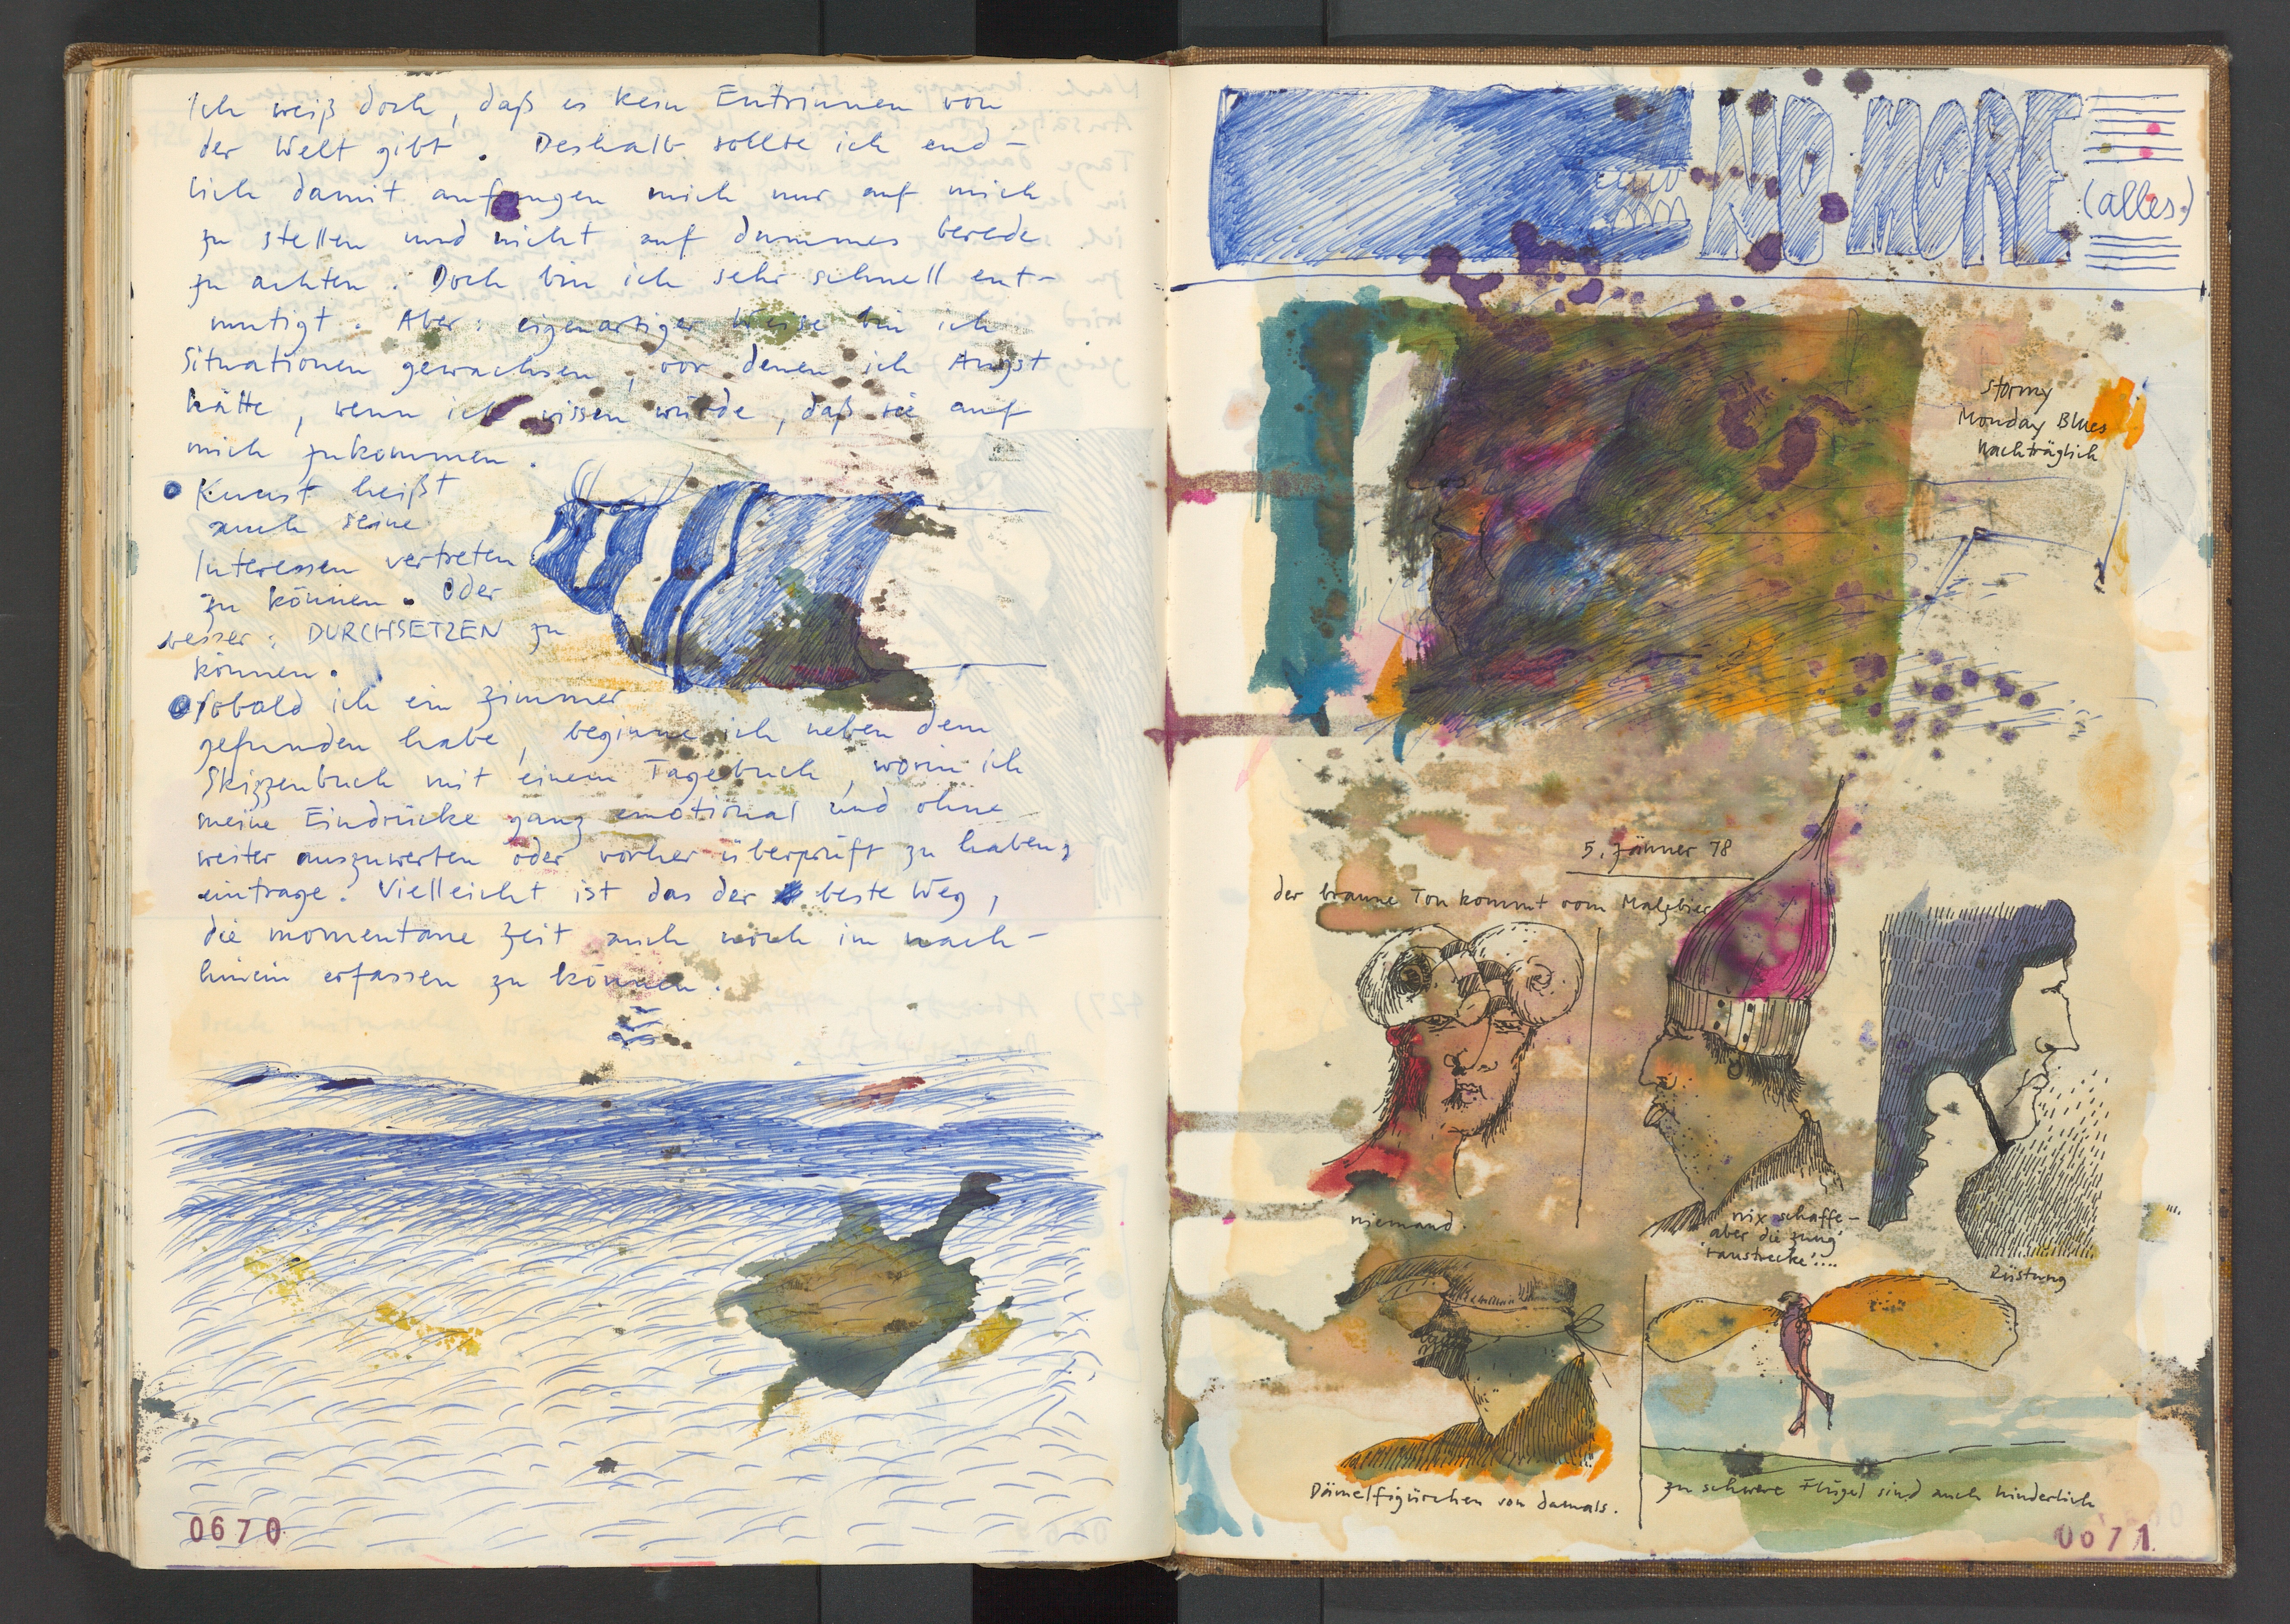 Ich weiß doch, daß es kein Entrinnen von
der Welt gibt. Deshalb sollte ich end-
lich damit anfangen mich nur auf mich
zu stellen und nicht auf dummes berede
zu achten. Doch bin ich sehr schnell ent-
mutigt. Aber: eigenartiger Weise bin ich
Situationen gewachsen, vor denen ich Angst
hätte, wenn ich wissen würde, daß sie auf
mich zukommen.
Kunst heißt
auch seine
Interessen vertreten
zu können. Oder
besser: DURCHSETZEN zu
können.
Sobald ich ein Zimmer
gefunden habe, beginne ich neben dem
Skizzenbuch mit einem Tagebuch, worin ich
meine Eindrücke ganz emotional und ohne
weiter auszuwerten oder vorher überprüft zu haben,
eintrage. Vielleicht ist das der beste Weg,
die momentane Zeit auch noch im nach-
hinein erfassen zu können.
0670
NO MORE
(alles.)
Stormy
Monday Blues
Nachträglich
5. Jänner 78
der braune Ton kommt vom Malzbier
niemand.
nix schaffe-
aber die zung'
rausstrecke!...
Rüstung
Dämelfigürchen von damals.
zu schwere Flügel sind auch hinderlich
0671